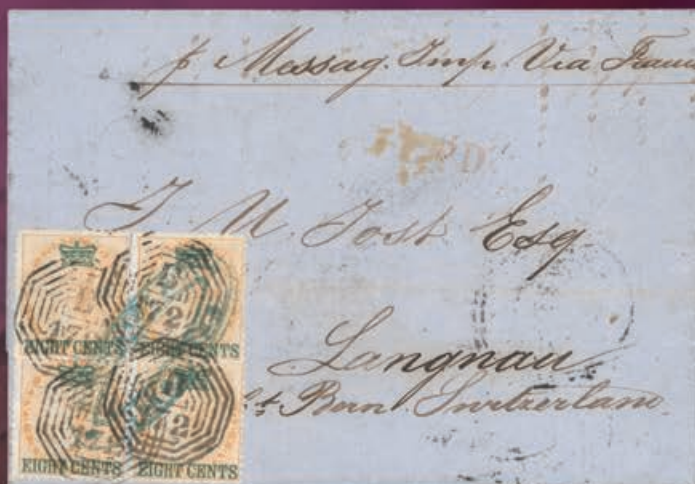 p Messag. Imp. Via
J. U. Jost Esq
Langnau
Ct Bern Switzerland
B
172
EIGHT CENTS
B
172
EIGHT CENTS
172
EIGHT CENTS
EIGHT CENTS